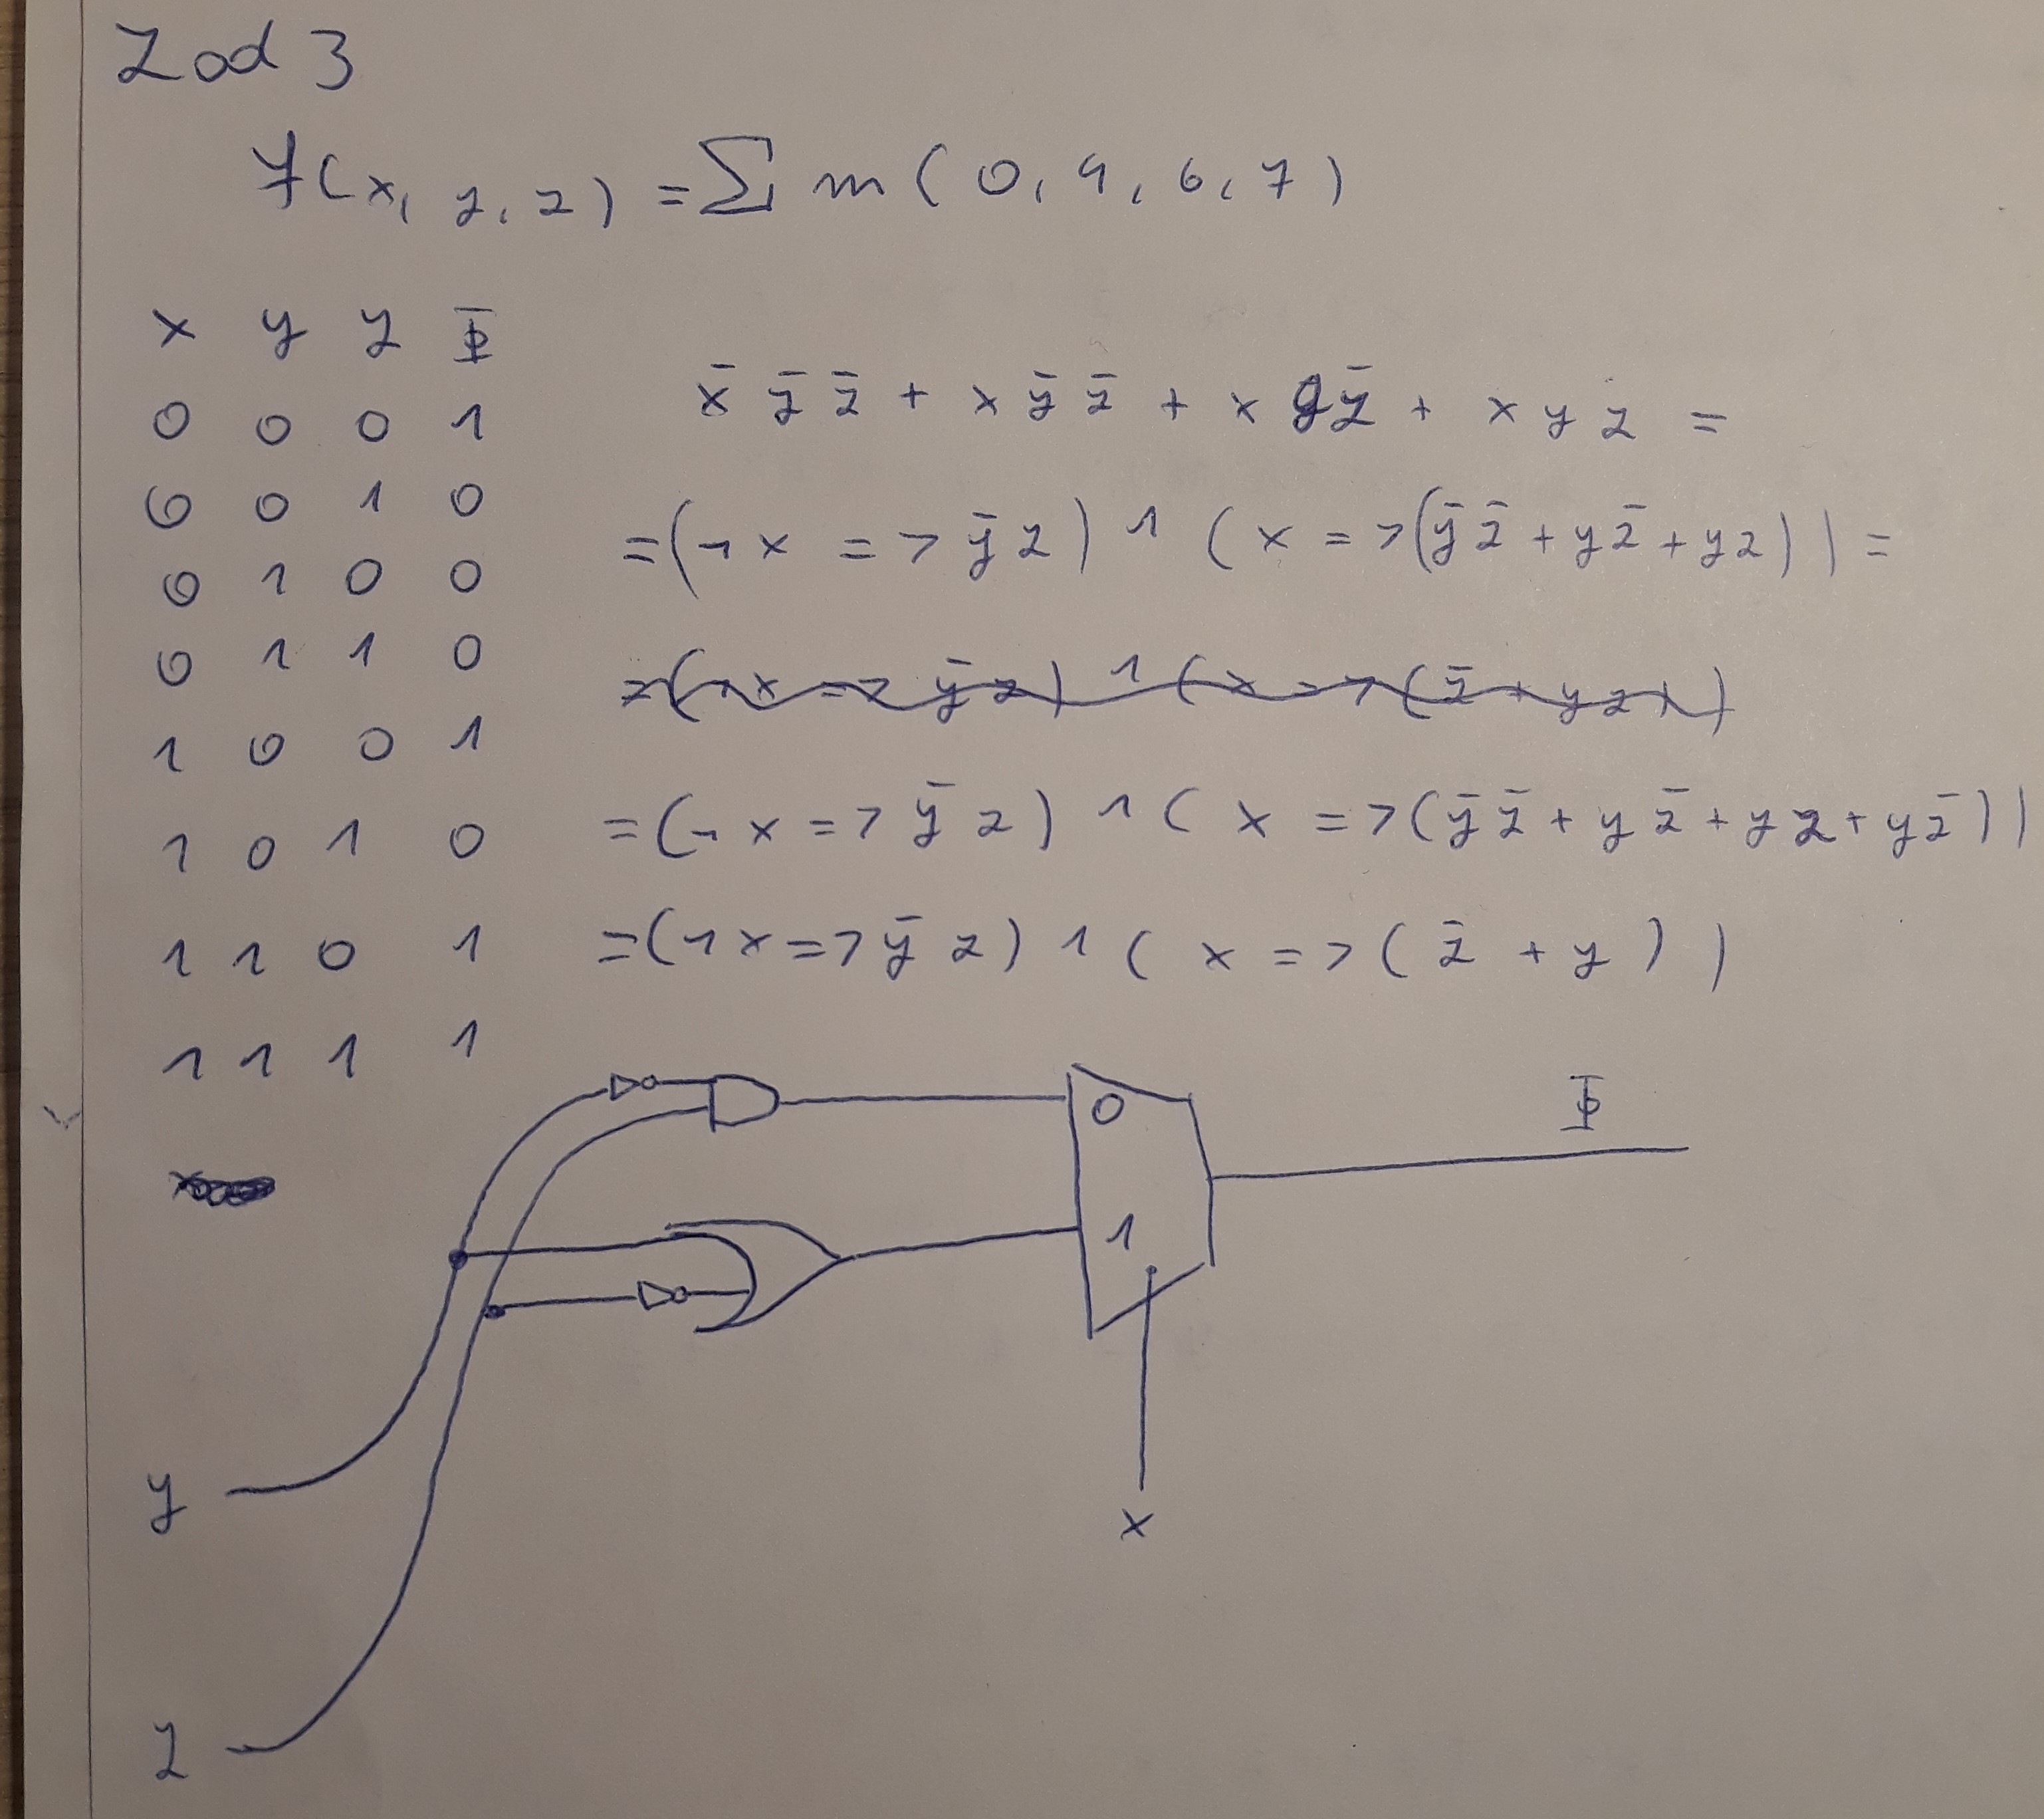 Zad 3
f(x, y, z) = Σ m(0, 4, 6, 7)
x y z Φ
0 0 0 1
0 0 1 0
0 1 0 0
0 1 1 0
1 0 0 1
1 0 1 0
1 1 0 1
1 1 1 1
x̄ ȳ z̄ + x ȳ z̄ + x y z̄ + x y z =
= (¬x => ȳ z) ∧ (x => (ȳ z̄ + y z̄ + y z)) =
= (¬x => ȳ z) ∧ (x => (z̄ + y z))
= (¬x => ȳ z) ∧ (x => (ȳ z̄ + y z̄ + y z + y z̄))
= (¬x => ȳ z) ∧ (x => (z̄ + y))
0
1
Φ
y
x
z